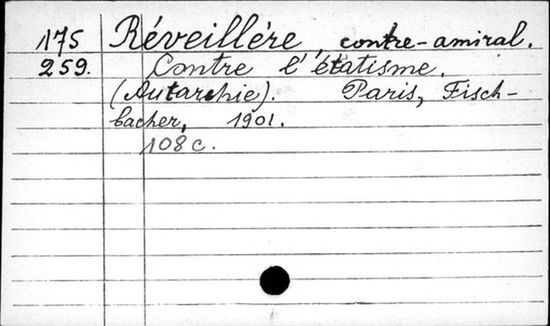 175 Réveillère, contre-amiral.
259. Contre l'étatisme.
(Autarchie). Paris, Fisch-
bacher, 1901.
108 c.